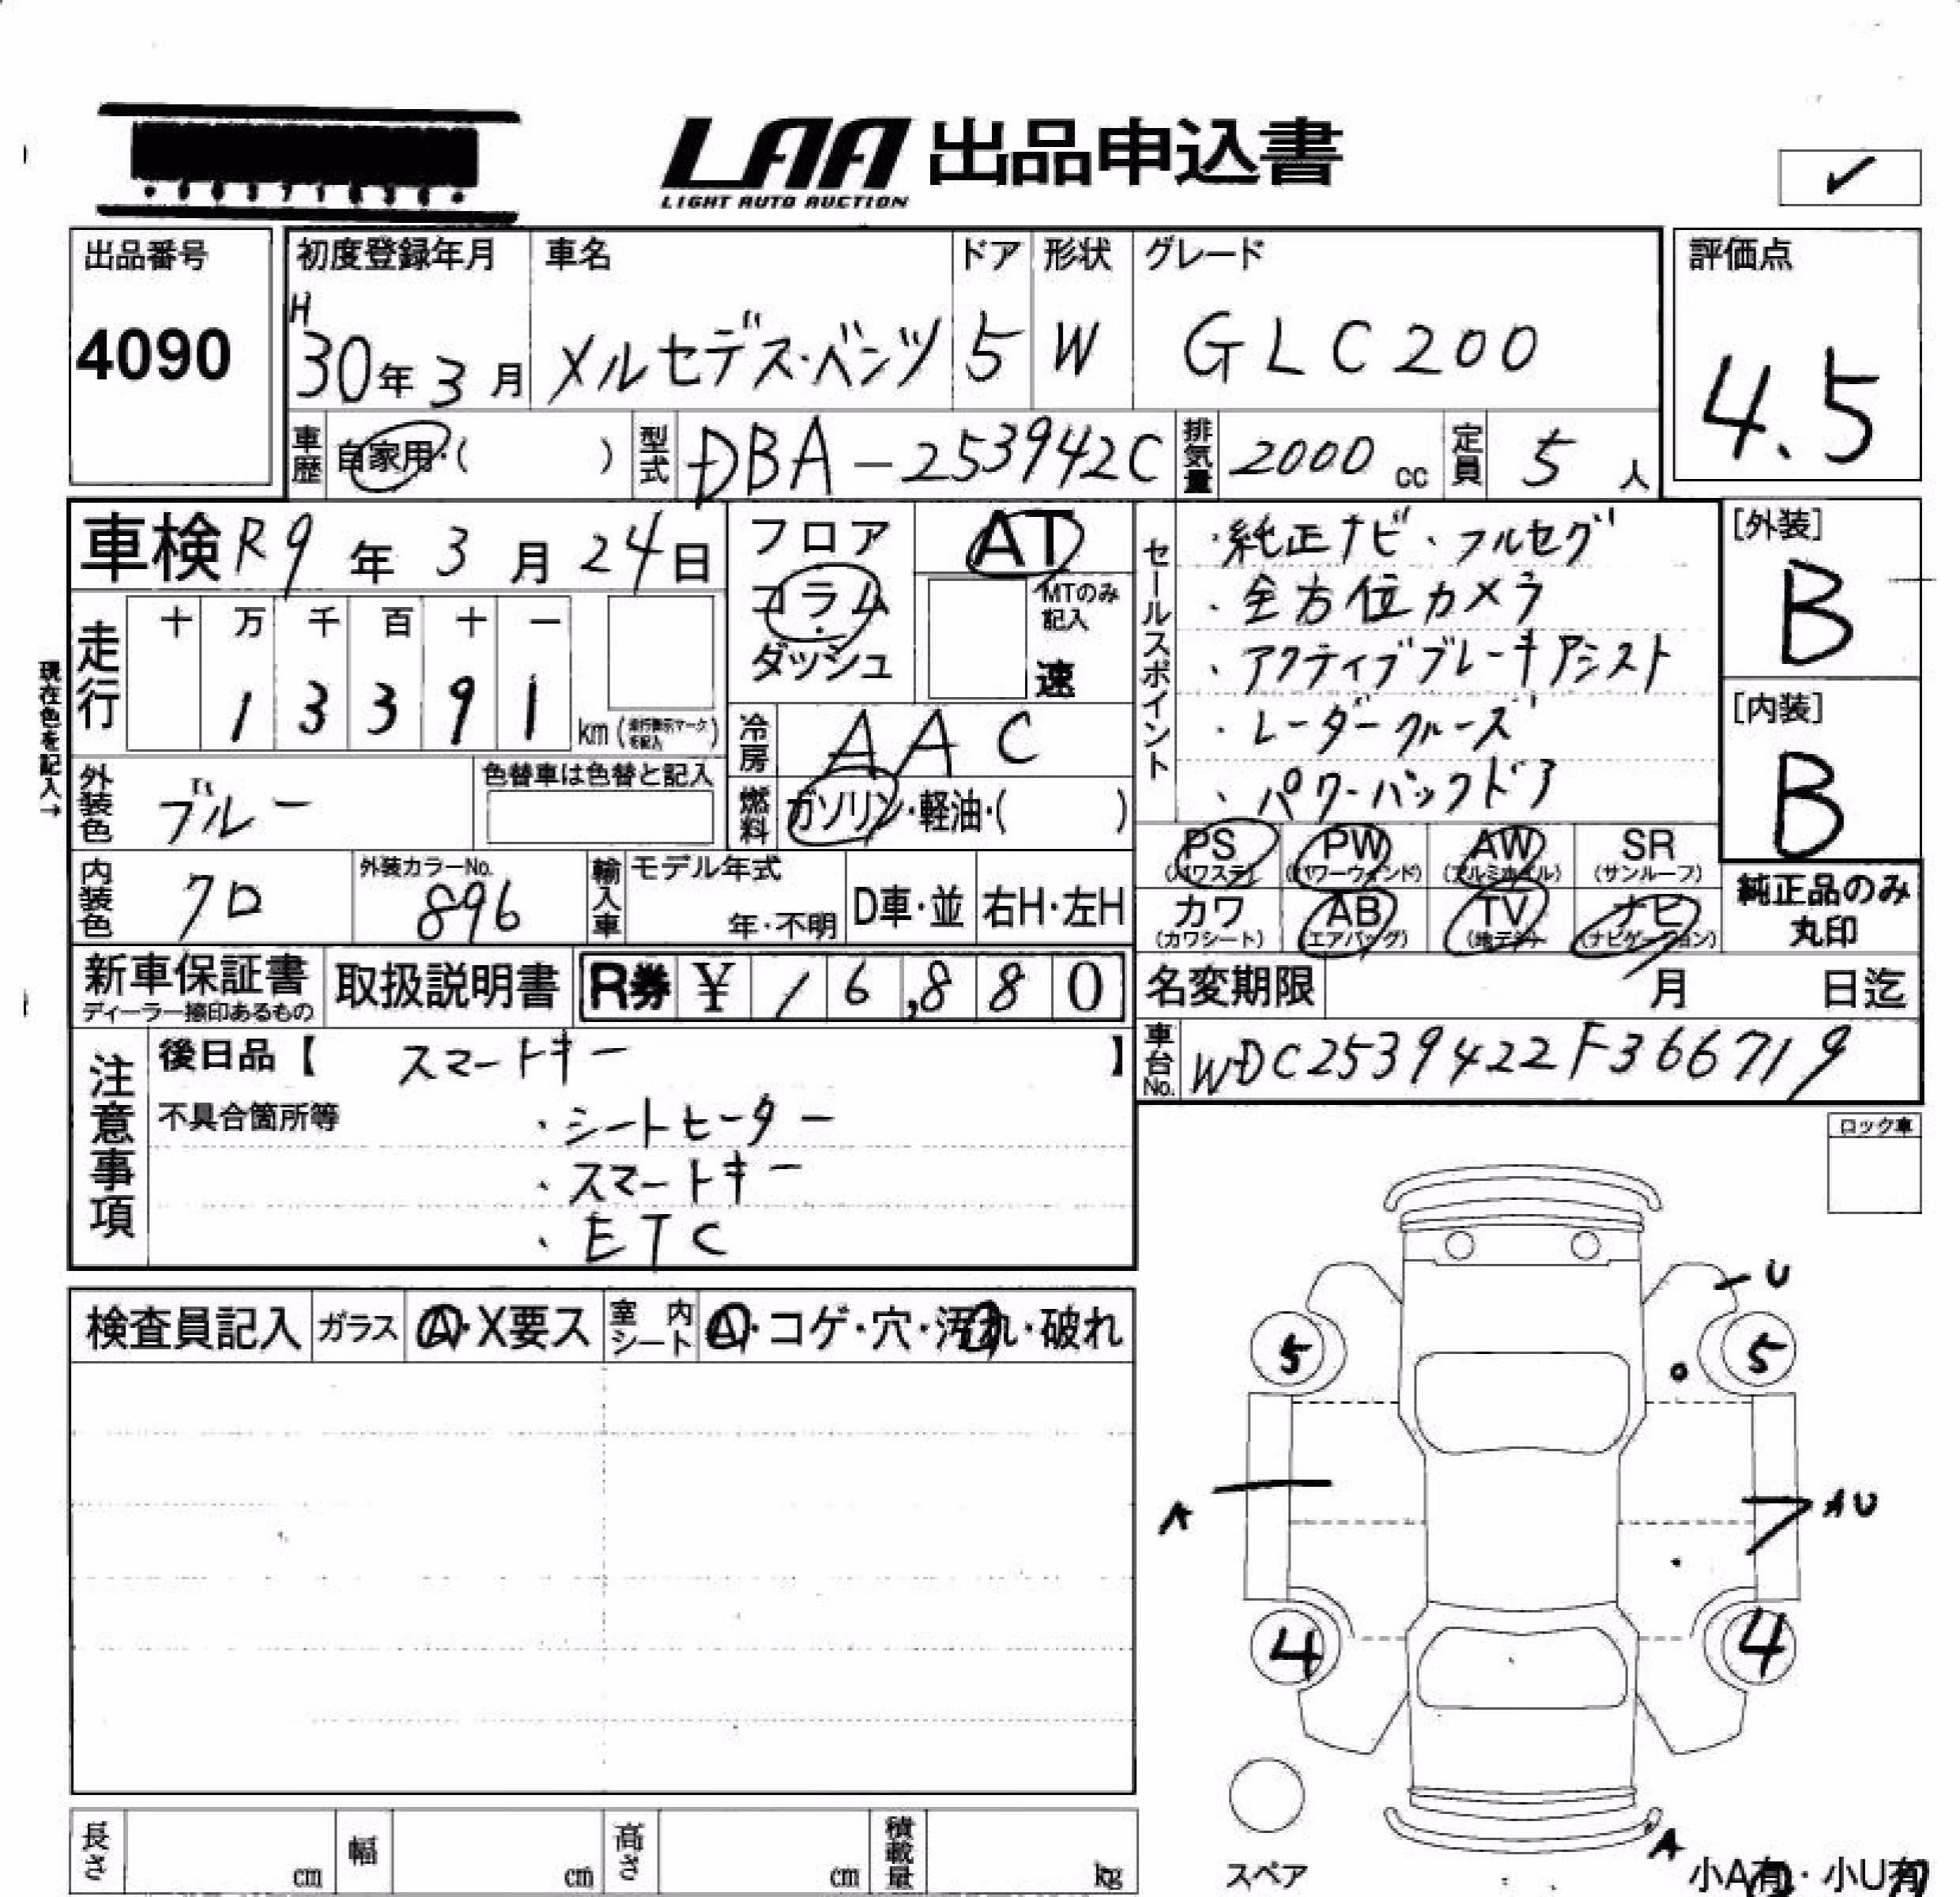 LAA 出品申込書
LIGHT AUTO AUCTION
✓
出品番号
4090
初度登録年月
H
30年 3月
車名
メルセデス・ベンツ
ドア
5
形状
W
グレード
GLC200
評価点
4.5
車歴 自家用・( )
型式 DBA-253942C
排気量 2000 cc
定員 5 人
車検 R9年 3月 24日
現在色を記入→
走行
十 万 千 百 十 一
1 3 3 9 1
km
フロア
コラム
ダッシュ
AT
MTのみ
記入
速
冷房 AAC
燃料 ガソリン・軽油・( )
外装色 ブルー
色替車は色替と記入
内装色 クロ
外装カラーNo.
896
輸入車
モデル年式
年・不明
D車・並
右H・左H
セールスポイント
・純正ナビ、フルセグ
・全方位カメラ
・アクティブブレーキアシスト
・レーダークルーズ
・パワーバックドア
[外装]
B
[内装]
B
PS
(パワステ)
PW
(パワーウィンド)
AW
(アルミホイル)
SR
(サンルーフ)
カワ
(カワシート)
AB
(エアバッグ)
TV
(地デジ)
ナビ
(ナビゲーション)
純正品のみ
丸印
新車保証書
ディーラー捺印あるもの
取扱説明書
R券 ¥16,880
名変期限 月 日迄
車台No. WDC2539422F366719
注意事項
後日品【 スマートキー 】
不具合箇所等
・シートヒーター
・スマートキー
・ETC
ロック車
検査員記入
ガラス
A・X要ス
室内シート
A・コゲ・穴・汚れ・破れ
U
5
5
A
AU
4
4
スペア
A
小A有・小U有
長さ cm
幅 cm
高さ cm
積載量 kg